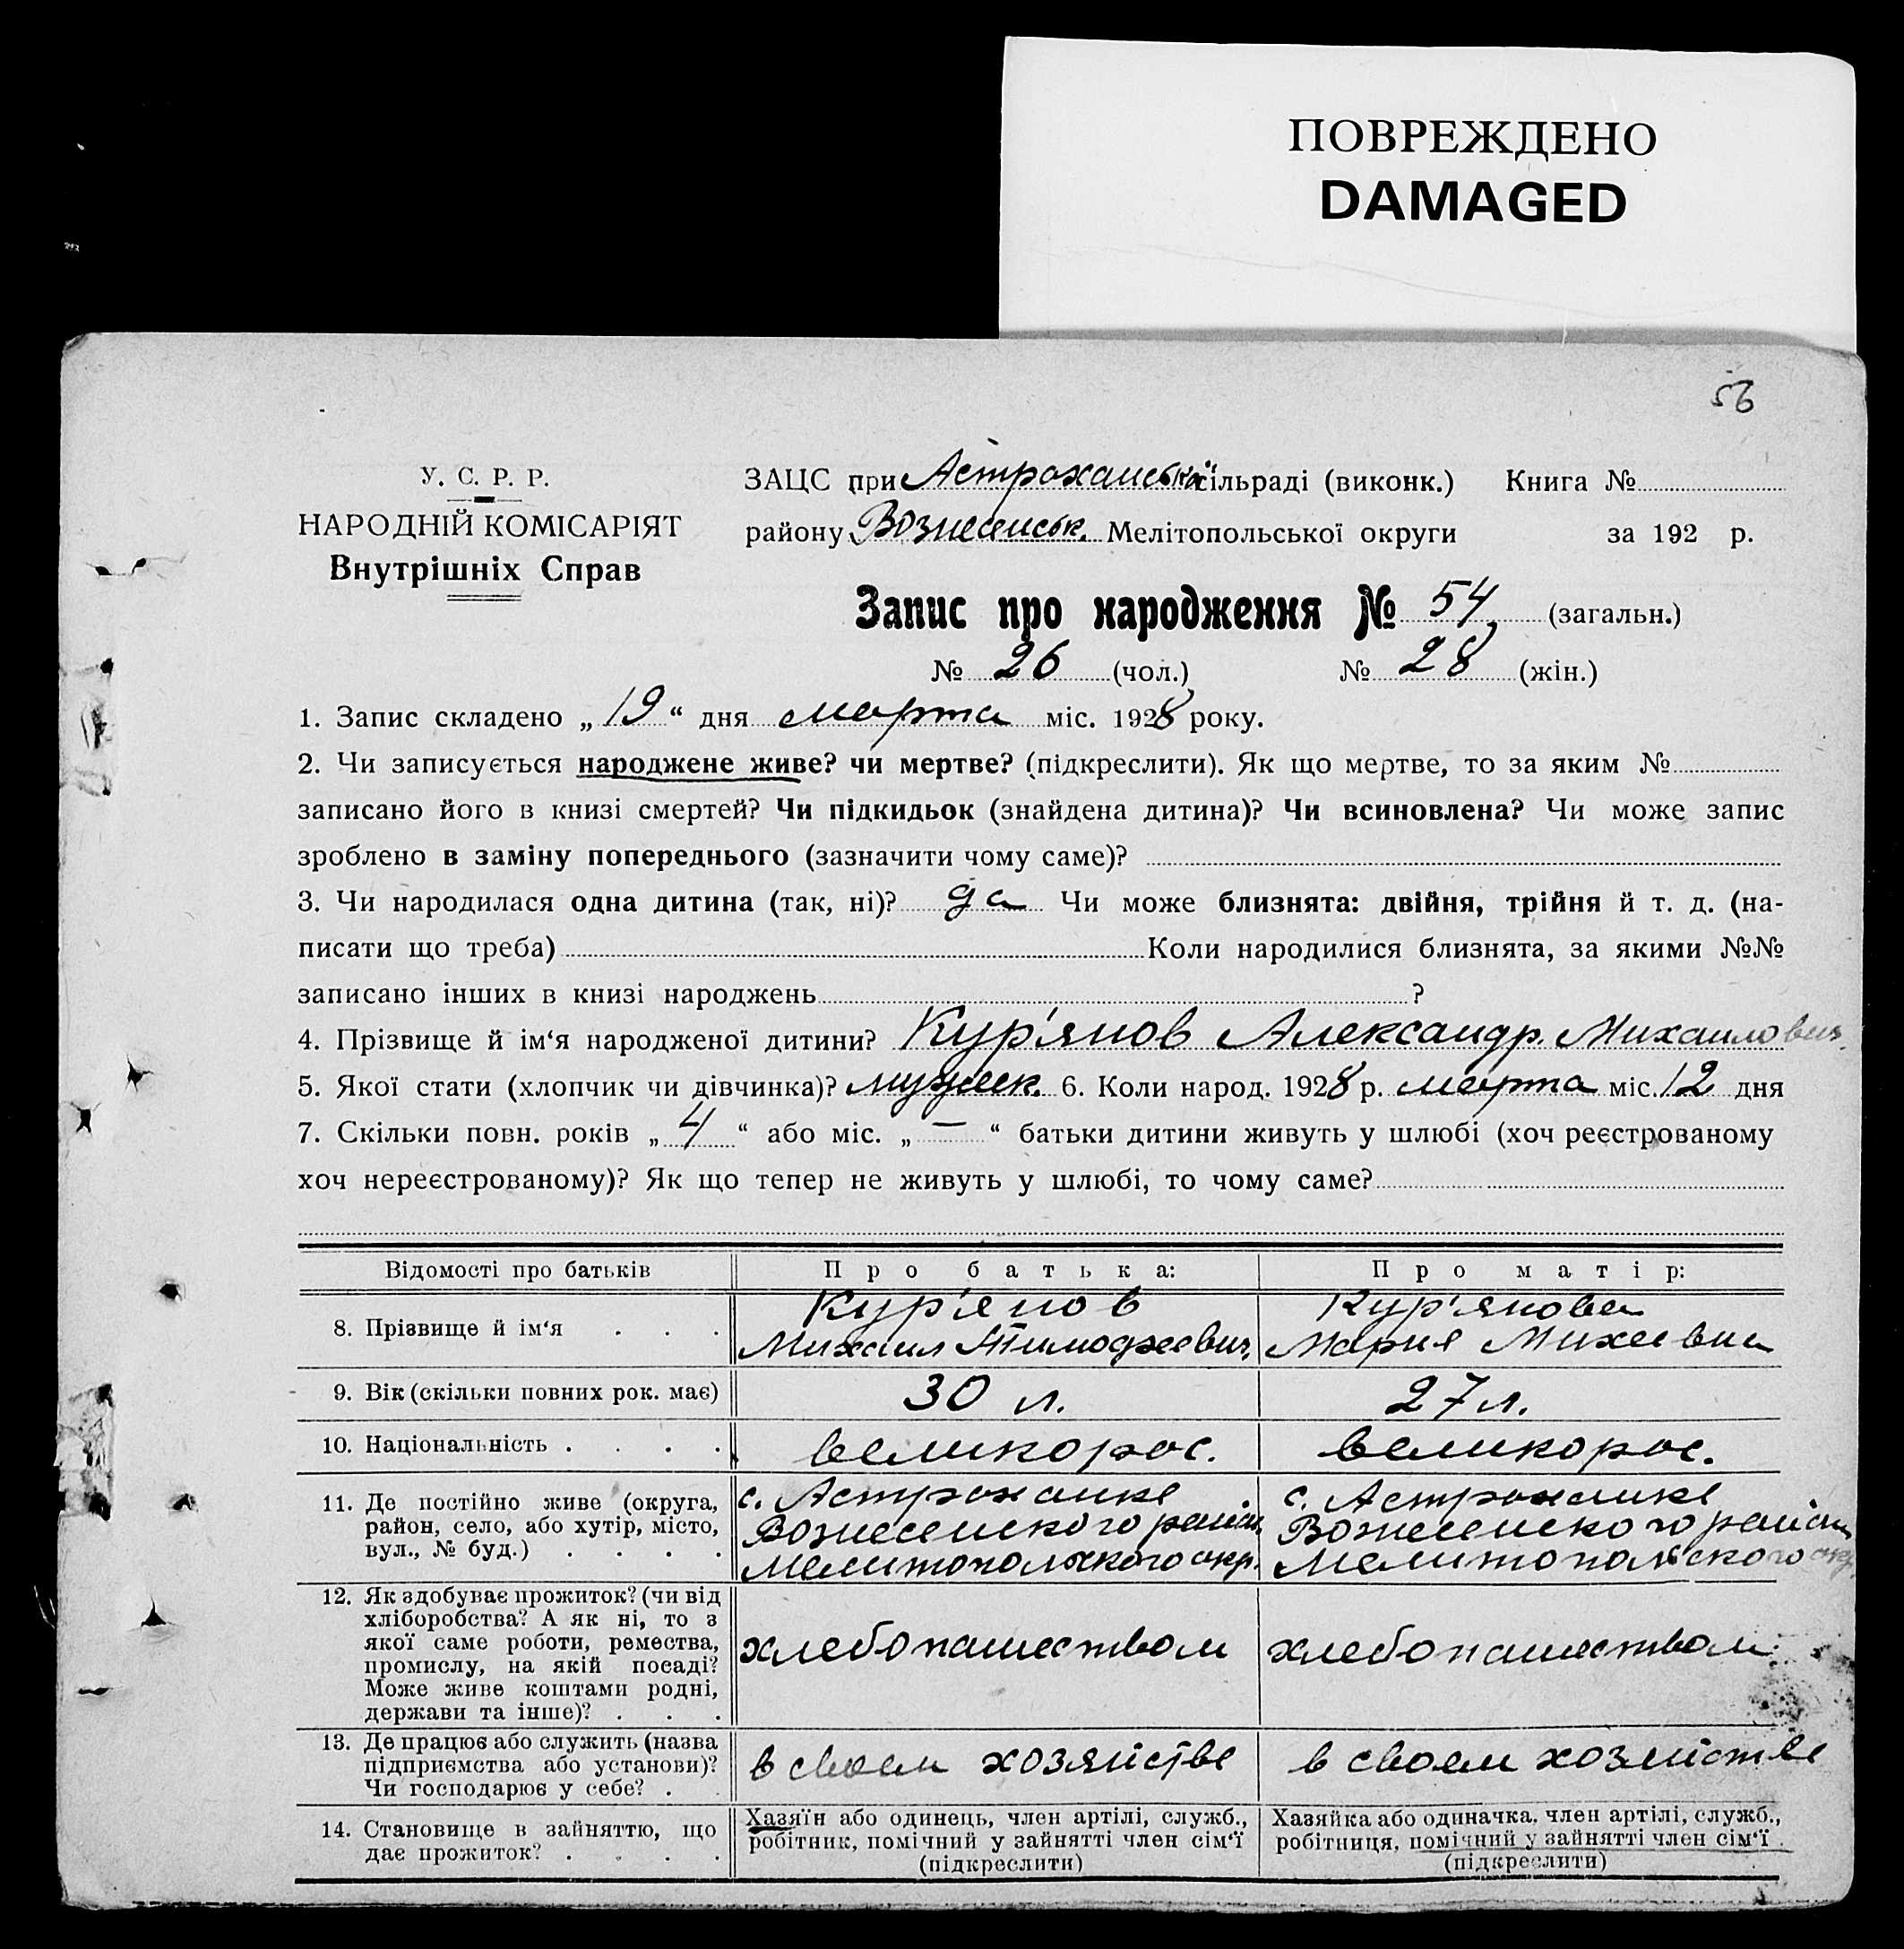 ПОВРЕЖДЕНО
DAMAGED
56
У. С. Р. Р.
НАРОДНІЙ КОМІСАРІЯТ
Внутрішніх Справ
ЗАЦС при Астроханській сільраді (виконк.) Книга №
району Вознесенськ. Мелітопольської округи за 192 р.
Запис про народження № 54 (загальн.)
№ 26 (чол.) № 28 (жін.)
1. Запис складено „ 19 “ дня марта міс. 1928 року.
2. Чи записується народжене живе? чи мертве? (підкреслити). Як що мертве, то за яким №
записано його в книзі смертей? Чи підкидьок (знайдена дитина)? Чи всиновлена? Чи може запис
зроблено в заміну попереднього (зазначити чому саме)?
3. Чи народилася одна дитина (так, ні)? да Чи може близнята: двійня, трійня й т. д. (на-
писати що треба) Коли народилися близнята, за якими №№
записано інших в книзі народжень ?
4. Прізвище й ім‘я народженої дитини? Кур'янов Александр. Михаилович.
5. Якої стати (хлопчик чи дівчинка)? мужск. 6. Коли народ. 1928 р. марта міс. 12 дня
7. Скільки повн. років „ 4 “ або міс. „ — “ батьки дитини живуть у шлюбі (хоч реєстрованому
хоч нереєстрованому)? Як що тепер не живуть у шлюбі, то чому саме?
Відомості про батьків Про батька: Про матір:
8. Прізвище й ім‘я . . .
Кур'янов
Михаил Тимофеевич,
Кур'янова
Мария Михеевна
9. Вік (скільки повних рок. має) 30 л. 27 л.
10. Національність . . . . великорос. великорос.
11. Де постійно живе (округа,
район, село, або хутір, місто,
вул., № буд.) . . . .
с. Астроханке
Вознесенского район
Мелитопольского окр.
с. Астроханке
Вознесенского район
Мелитопольского окр.
12. Як здобуває прожиток? (чи від
хліборобства? А як ні, то з
якої саме роботи, ремества,
промислу, на якій посаді?
Може живе коштами родні,
держави та інше)? . . .
хлебопашеством
хлебопашеством
13. Де працює або служить (назва
підприємства або установи)?
Чи господарює у себе? .
в своем хозяйстве
в своем хозяйстве
14. Становище в зайняттю, що
дає прожиток? . . . .
Хазяїн або одинець, член артілі, служб.,
робітник, помічний у зайнятті член сім‘ї
(підкреслити)
Хазяйка або одиначка, член артілі, служб.,
робітниця, помічний у зайнятті член сім‘ї
(підкреслити)